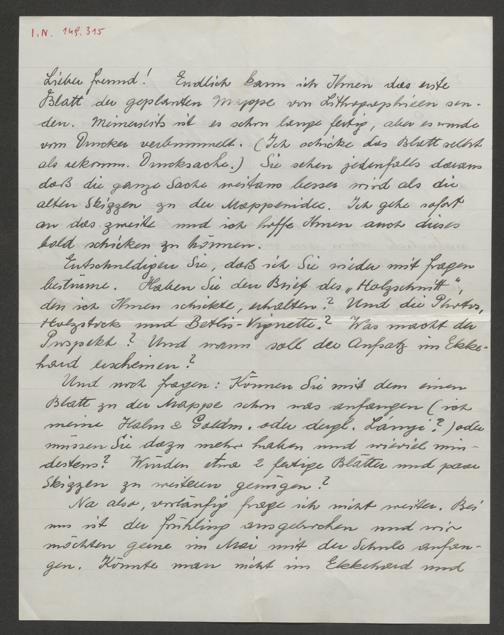 I.N. 149.315
Lieber Freund! Endlich kann ich Ihnen das erste
Blatt der geplanten Mappe von Lithographieen sen-
den. Meinerseits ist es schon lange fertig, aber es wurde
vom Drucker verbummelt. (Ich schicke das Blatt selbst
als rekomm. Drucksache.) Sie sehen jedenfalls daraus
daß die ganze Sache weitaus besser wird als die
alten Skizzen zu der Mappenidee. Ich gehe sofort
an das zweite und ich hoffe Ihnen auch dieses
bald schicken zu können.
Entschuldigen Sie, daß ich Sie wieder mit Fragen
bestürme. Haben Sie den Brief des „Holzschnitt",
den ich Ihnen schickte, erhalten? Und die Photos,
Holzstock und Vignette? Was macht der
Prospekt? Und wann soll der Aufsatz im Ekke-
hard erscheinen?
Und noch Fragen: Können Sie mit dem einen
Blatt zu der Mappe schon was anfangen (ich
meine Halm & Goldm. oder dergl. Länyi?) oder
müssen Sie dazu mehr haben und wieviel min-
destens? Würden etwa 2 fertige Blätter und paar
Skizzen zu weiteren genügen?
Na also, vorläufig frage ich nicht weiter. Bei
uns ist der Frühling ausgebrochen und wir
möchten gerne im Mai mit der Schule anfan-
gen. Könnte man nicht im Ekkehard und